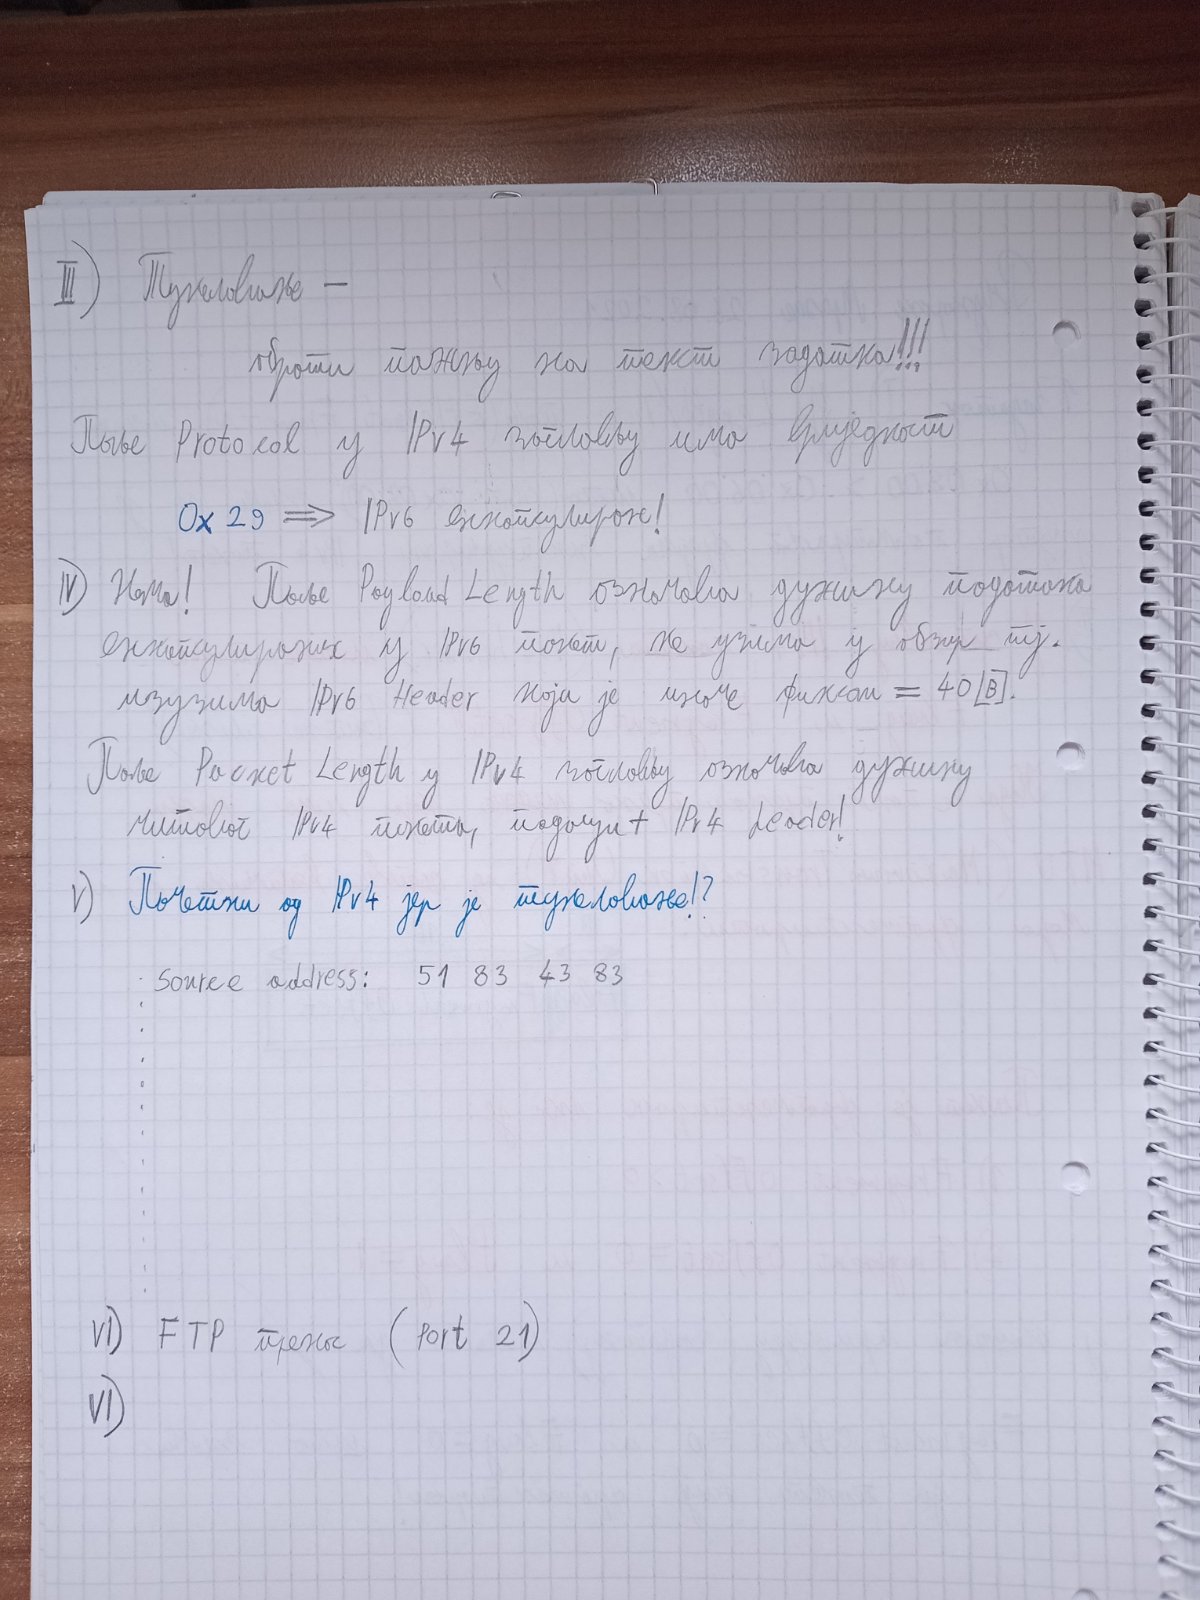 III) Тунеловање –
обрати пажњу на текст задатка!!!
Поље Protocol у IPv4 заглављу има вриједност
0x29 => IPv6 енкапсулиран!
IV) Нема! Поље Payload Length означава дужину података
енкапсулираних у IPv6 пакет, не узима у обзир тј.
изузима IPv6 Header који је иначе фиксан = 40[B].
Поље Packet Length у IPv4 заглављу означава дужину
читавог IPv4 пакета, подаци + IPv4 Header!
V) Почетни од IPv4 јер је тунеловање!?
Source address: 51 83 43 83
VI) FTP пренос (Port 21)
VI)